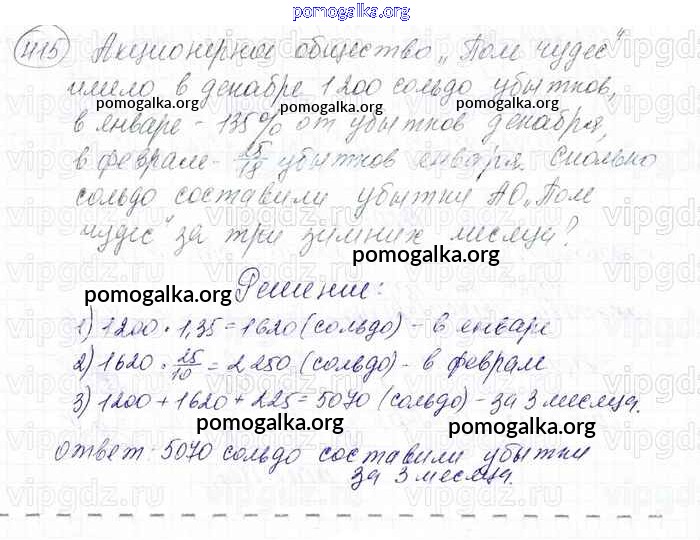 pomogalka.org
415 Акционерное общество „Поле чудес“
имело в декабре 1200 сольдо убытков,
pomogalka.org pomogalka.org
в январе - 135% от убытков декабря,
в феврале - 25/18 убытков января. Сколько
сольдо составили убытки АО „Поле
чудес“ за три зимних месяца?
pomogalka.org
pomogalka.org Решение:
1) 1200 · 1,35 = 1620 (сольдо) - в январе
2) 1620 · 25/10 = 2250 (сольдо) - в феврале
3) 1200 + 1620 + 225 = 5070 (сольдо) - за 3 месяца.
pomogalka.org pomogalka.org
ответ: 5070 сольдо составили убытки
за 3 месяца.
pomogalka.org